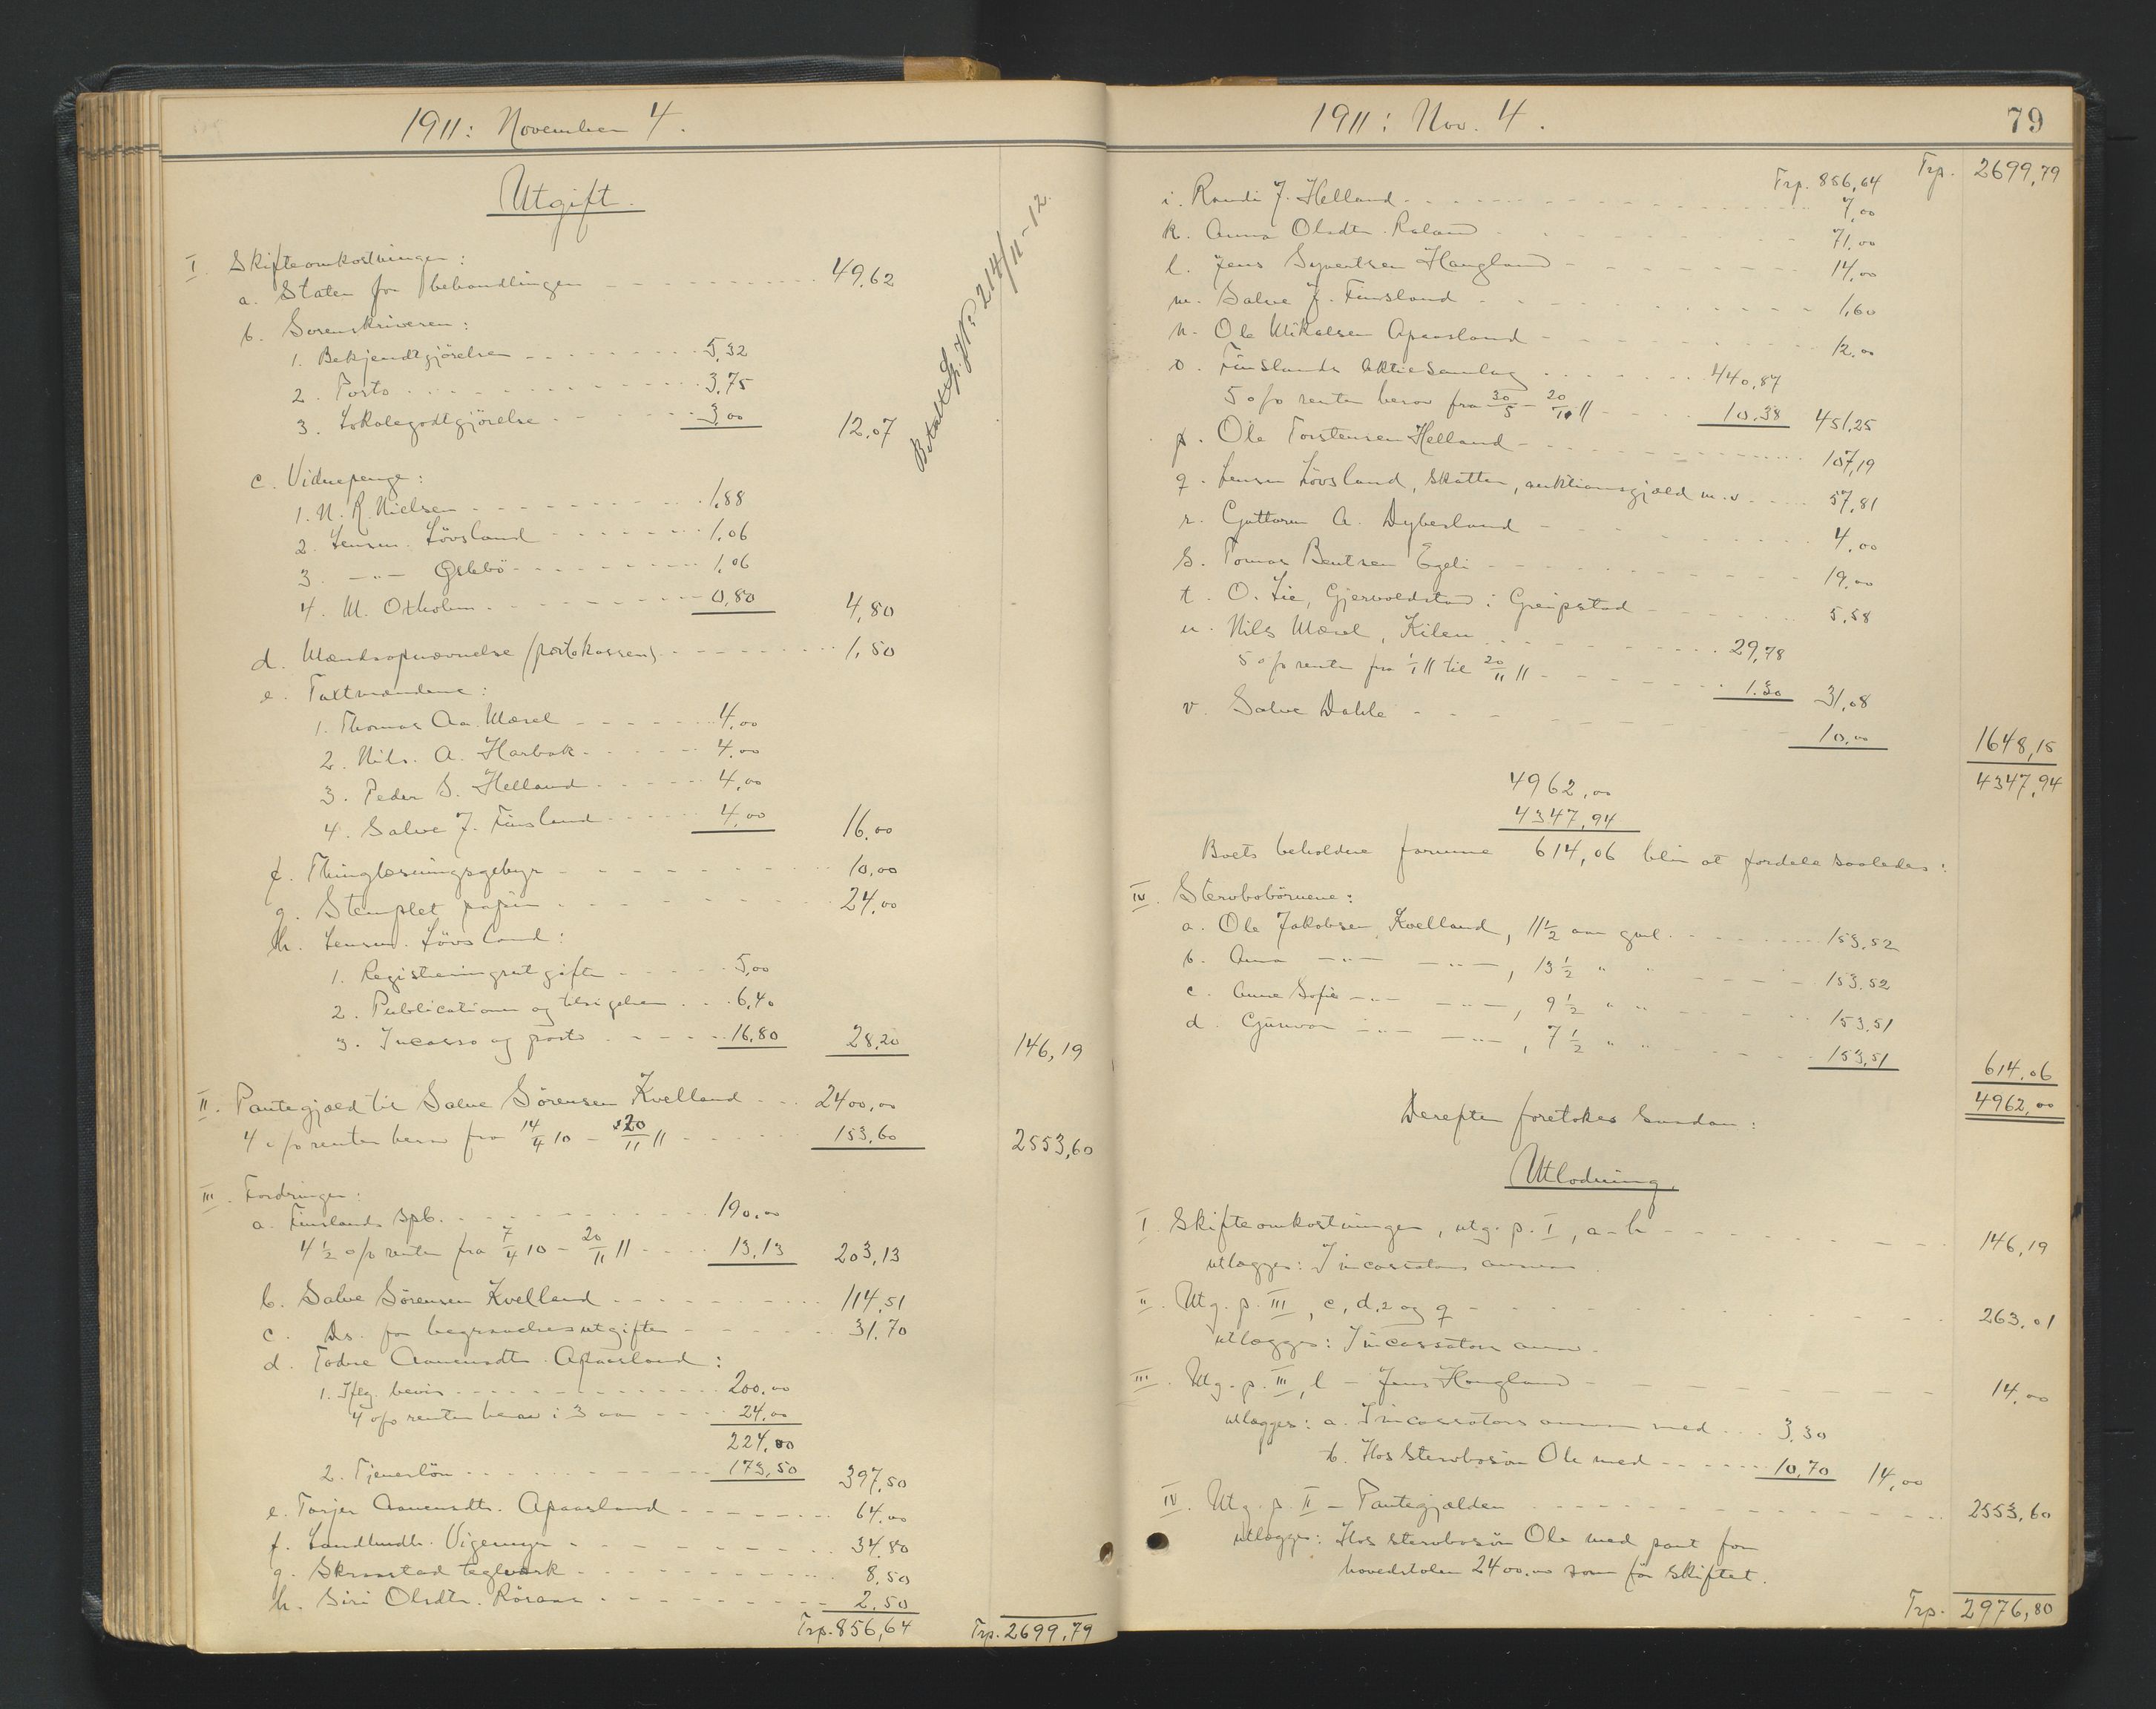 1911: November 4.
Utgift.
I. Skifteomkostninger:
a. Staten for behandlingen 49,62
b. Sorenskriveren:
1. Bekjendtgjörelsen 5,32
2. Porto 3,75
3. Lokalegodtgjörelse 3,00 12,07
Betalt Sp. J.N° 214/11-12.
c. Vidnepenge:
1. N. R. Nielsen 1,88
2. Lensm. Lövsland 1,06
3. -"- Gelebö 1,06
4. M. Oxholm 0,80 4,80
d. Mændsopnævnelse (portokassen) 1,50
e. Taxtmændene:
1. Thomas Aa. Mæsel 4,00
2. Nils A. Harbak 4,00
3. Peder S. Helland 4,00
4. Salve J. Finsland 4,00 16,00
f. Thinglæsningsgebyr 10,00
g. Stemplet papir 24,00
h. Lensm. Lövsland:
1. Registreringsutgifter 5,00
2. Publicationer og tilsigelser 6,40
3. Incasso og porto 16,80 28,20 146,19
II. Pantegjæld til Salve Sörensen Kvelland 2400,00
4 o/o renter herav fra 14/4 10 - 20/11 11 153,60 2553,60
III. Fordringer:
a. Finslands Spb. 190,00
4 1/2 o/o renter fra 7/4 10 - 20/11 11 13,13 203,13
b. Salve Sörensen Kvelland 114,51
c. Ds. for begravelsesutgifter 31,70
d. Todne Aanensdtr. Apaasland:
1. Iflg. bevis 200,00
4 o/o renter herav i 3 aar 24,00
224,00
2. Tjenerlön 173,50 397,50
e. Torjer Aanensdtr. Apaasland 64,00
f. Landhndl. Vigemyr 34,80
g. Skraastad teglværk 8,50
h. Siri Olsdtr. Rösaas 2,50
Trp. 856,64 Trp. 2699,79
1911: Nov. 4.
79
Trp. 856,64 Trp. 2699,79
i. Randi J. Helland 7,00
k. Anna Olsdtr. Röland 71,00
l. Jens Syvertsen Haugland 14,00
m. Salve J. Finsland 1,60
n. Ole Mikalsen Apaasland 12,00
o. Finslands Aktiesamlag 440,87
5 o/o renter herav fra 30/5 - 20/11 11 10,38 451,25
p. Ole Torstensen Helland 107,19
q. Lensm Lövsland, skatter, auktionsgjæld m.v. 57,81
r. Guttorm A. Dybesland 4,00
s. Tomas Bentsen Egeli 19,00
t. O. Lie, Gjervoldstad i Greipstad 5,58
u. Nils Mæsel, Kilen 29,78
5 o/o renter fra 1/1 11 til 20/11 11 1.30 31,08
v. Salve Dahle 10,00 1648,15
4347,94
4962,00
4347,94
Boets beholdne formue 614,06 blir at fordele saaledes:
IV. Stervbobörnene:
a. Ole Jakobsen Kvelland, 11 1/2 aar gml. 153,52
b. Anna -"- -"-, 13 1/2 " " 153,52
c. Anne Sofie -"- -"-, 9 1/2 " " 153,51
d. Gunvor -"- -"-, 7 1/2 " " 153,51 614,06
4962,00
Derefter foretokes saadan:
Utlodning.
I. Skifteomkostninger, utg. p. I, a-h 146,19
utlægges: Incassators ansvar.
II. Utg. p. III, c, d,2 og q 263,01
utlægges: Incassators ansv.
III. Utg. p. III, l - Jens Haugland 14,00
utlægges: a. Incassators ansvar med 3,30
b. Hos stervbosön Ole med 10,70 14,00
IV. Utg. p. II - Pantegjælden 2553,60
utlægges: Hos stervbosön Ole med pant for
hovedstolen 2400,00 som för skiftet.
Trp. 2976,80